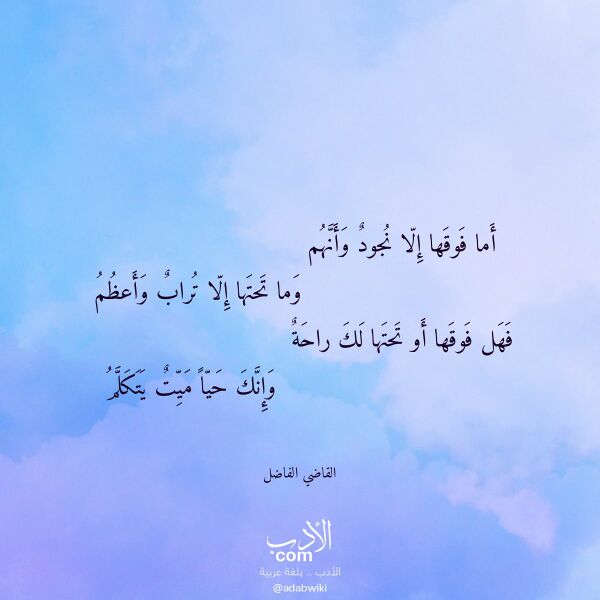 أَما فَوقَها إِلّا نُجودٌ وَأَنَّهُم
وَما تَحتَها إِلّا تُرابٌ وَأَعظُمُ
فَهَل فَوقَها أَو تَحتَها لَكَ راحَةٌ
وَإِنَّكَ حَيّاً مَيِّتٌ يَتَكَلَّمُ
القاضي الفاضل
الأدب
com
الأدب .. بلغة عربية
@adabwiki